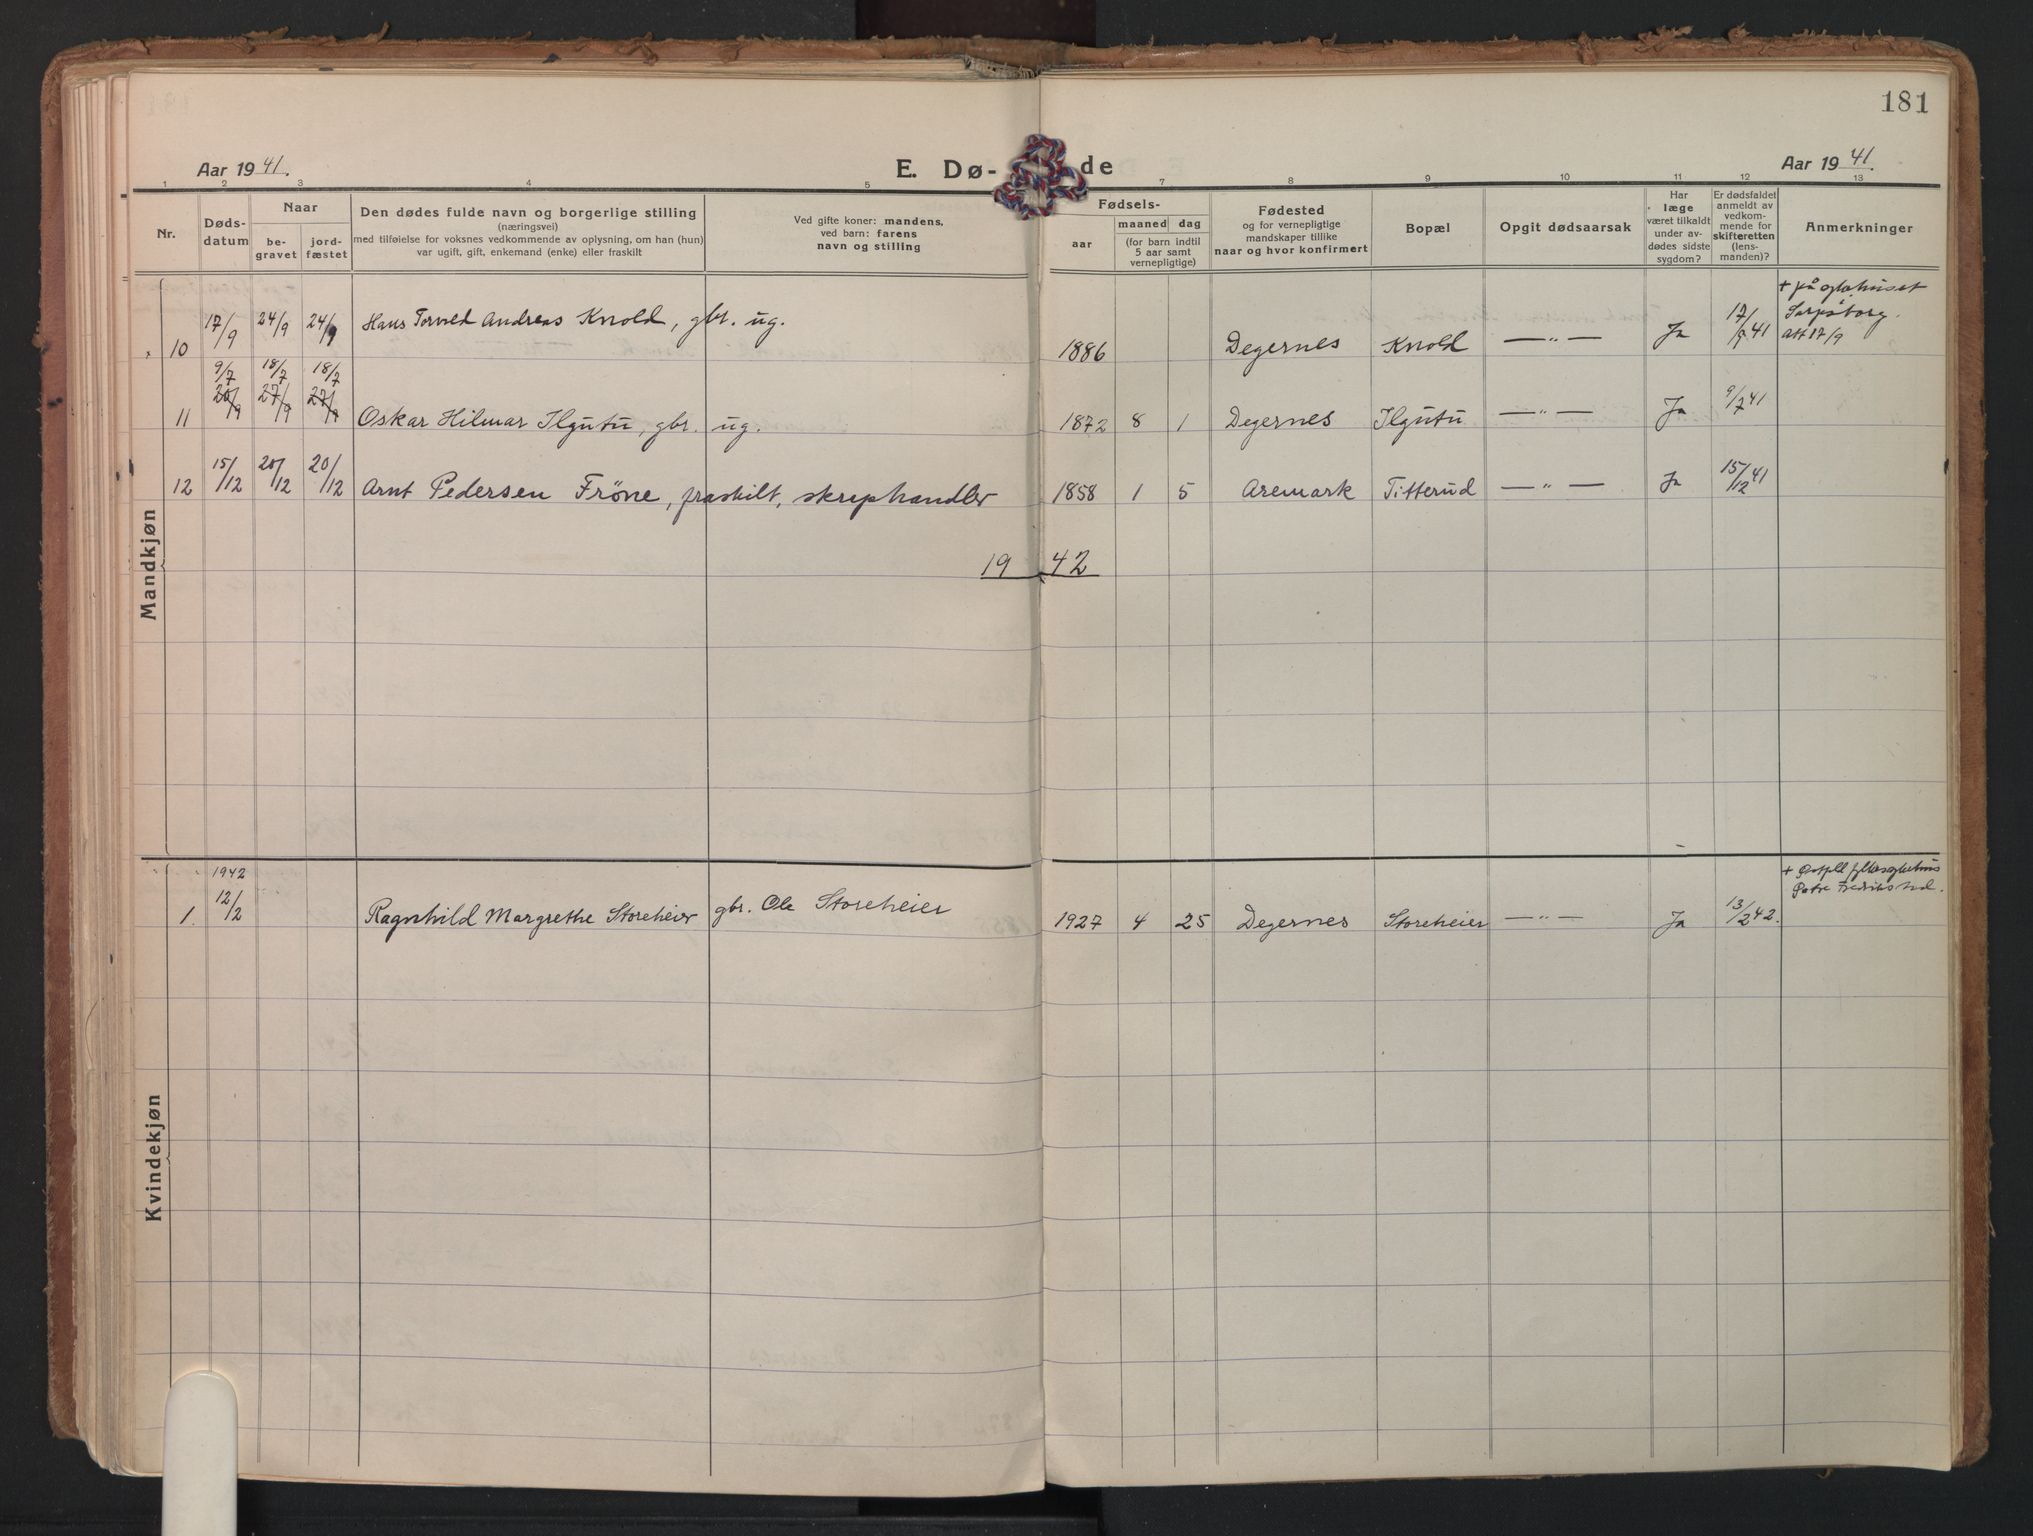 181
Aar 1941.
E. Dø- de
Aar 1941.
1 2 3 4 5 7 8 9 10 11 12 13
Nr.
Døds-
datum
Naar
be-
gravet
jord-
fæstet
Den dødes fulde navn og borgerlige stilling
(næringsvei)
med tilføielse for voksnes vedkommende av oplysning, om han (hun)
var ugift, gift, enkemand (enke) eller fraskilt
Ved gifte koner: mandens,
ved barn: farens
navn og stilling
Fødsels-
aar
maaned dag
(for barn indtil
5 aar samt
vernepligtige)
Fødested
og for vernepligtige
mandskaper tillike
naar og hvor konfirmert
Bopæl
Opgit dødsaarsak
Har
læge
været tilkaldt
under av-
dødes sidste
sygdom?
Er dødsfaldet
anmeldt av
vedkom-
mende for
skifteretten
(lens-
manden)?
Anmerkninger
Mandkjøn
+ på sykehuset
Sarpsborg.
att 17/9
10 17/9 24/9 24/9 Hans Torvald Andreas Knold, gbr. ug. 1886 Degernes Knold — " — Ja 17/9 41
9/7 18/7 18/7
11 20/9 27/9 27/9 Oskar Hilmar Ilgutu, gbr. ug. 1872 8 1 Degernes Ilgutu — " — Ja 9/7 41
12 15/12 20/12 20/12 Arnt Pedersen Fröne, fraskilt, skraphandler 1858 1 5 Aremark Titterud — " — Ja 15/12 41
19 42
Kvindekjøn
1942
+ Østfold fylkessykehus
Østre Fredrikstad.
1. 12/2 Ragnhild Margrethe Storeheier gbr. Ole Storeheier 1927 4 25 Degernes Storeheier — " — Ja 13/2 42.